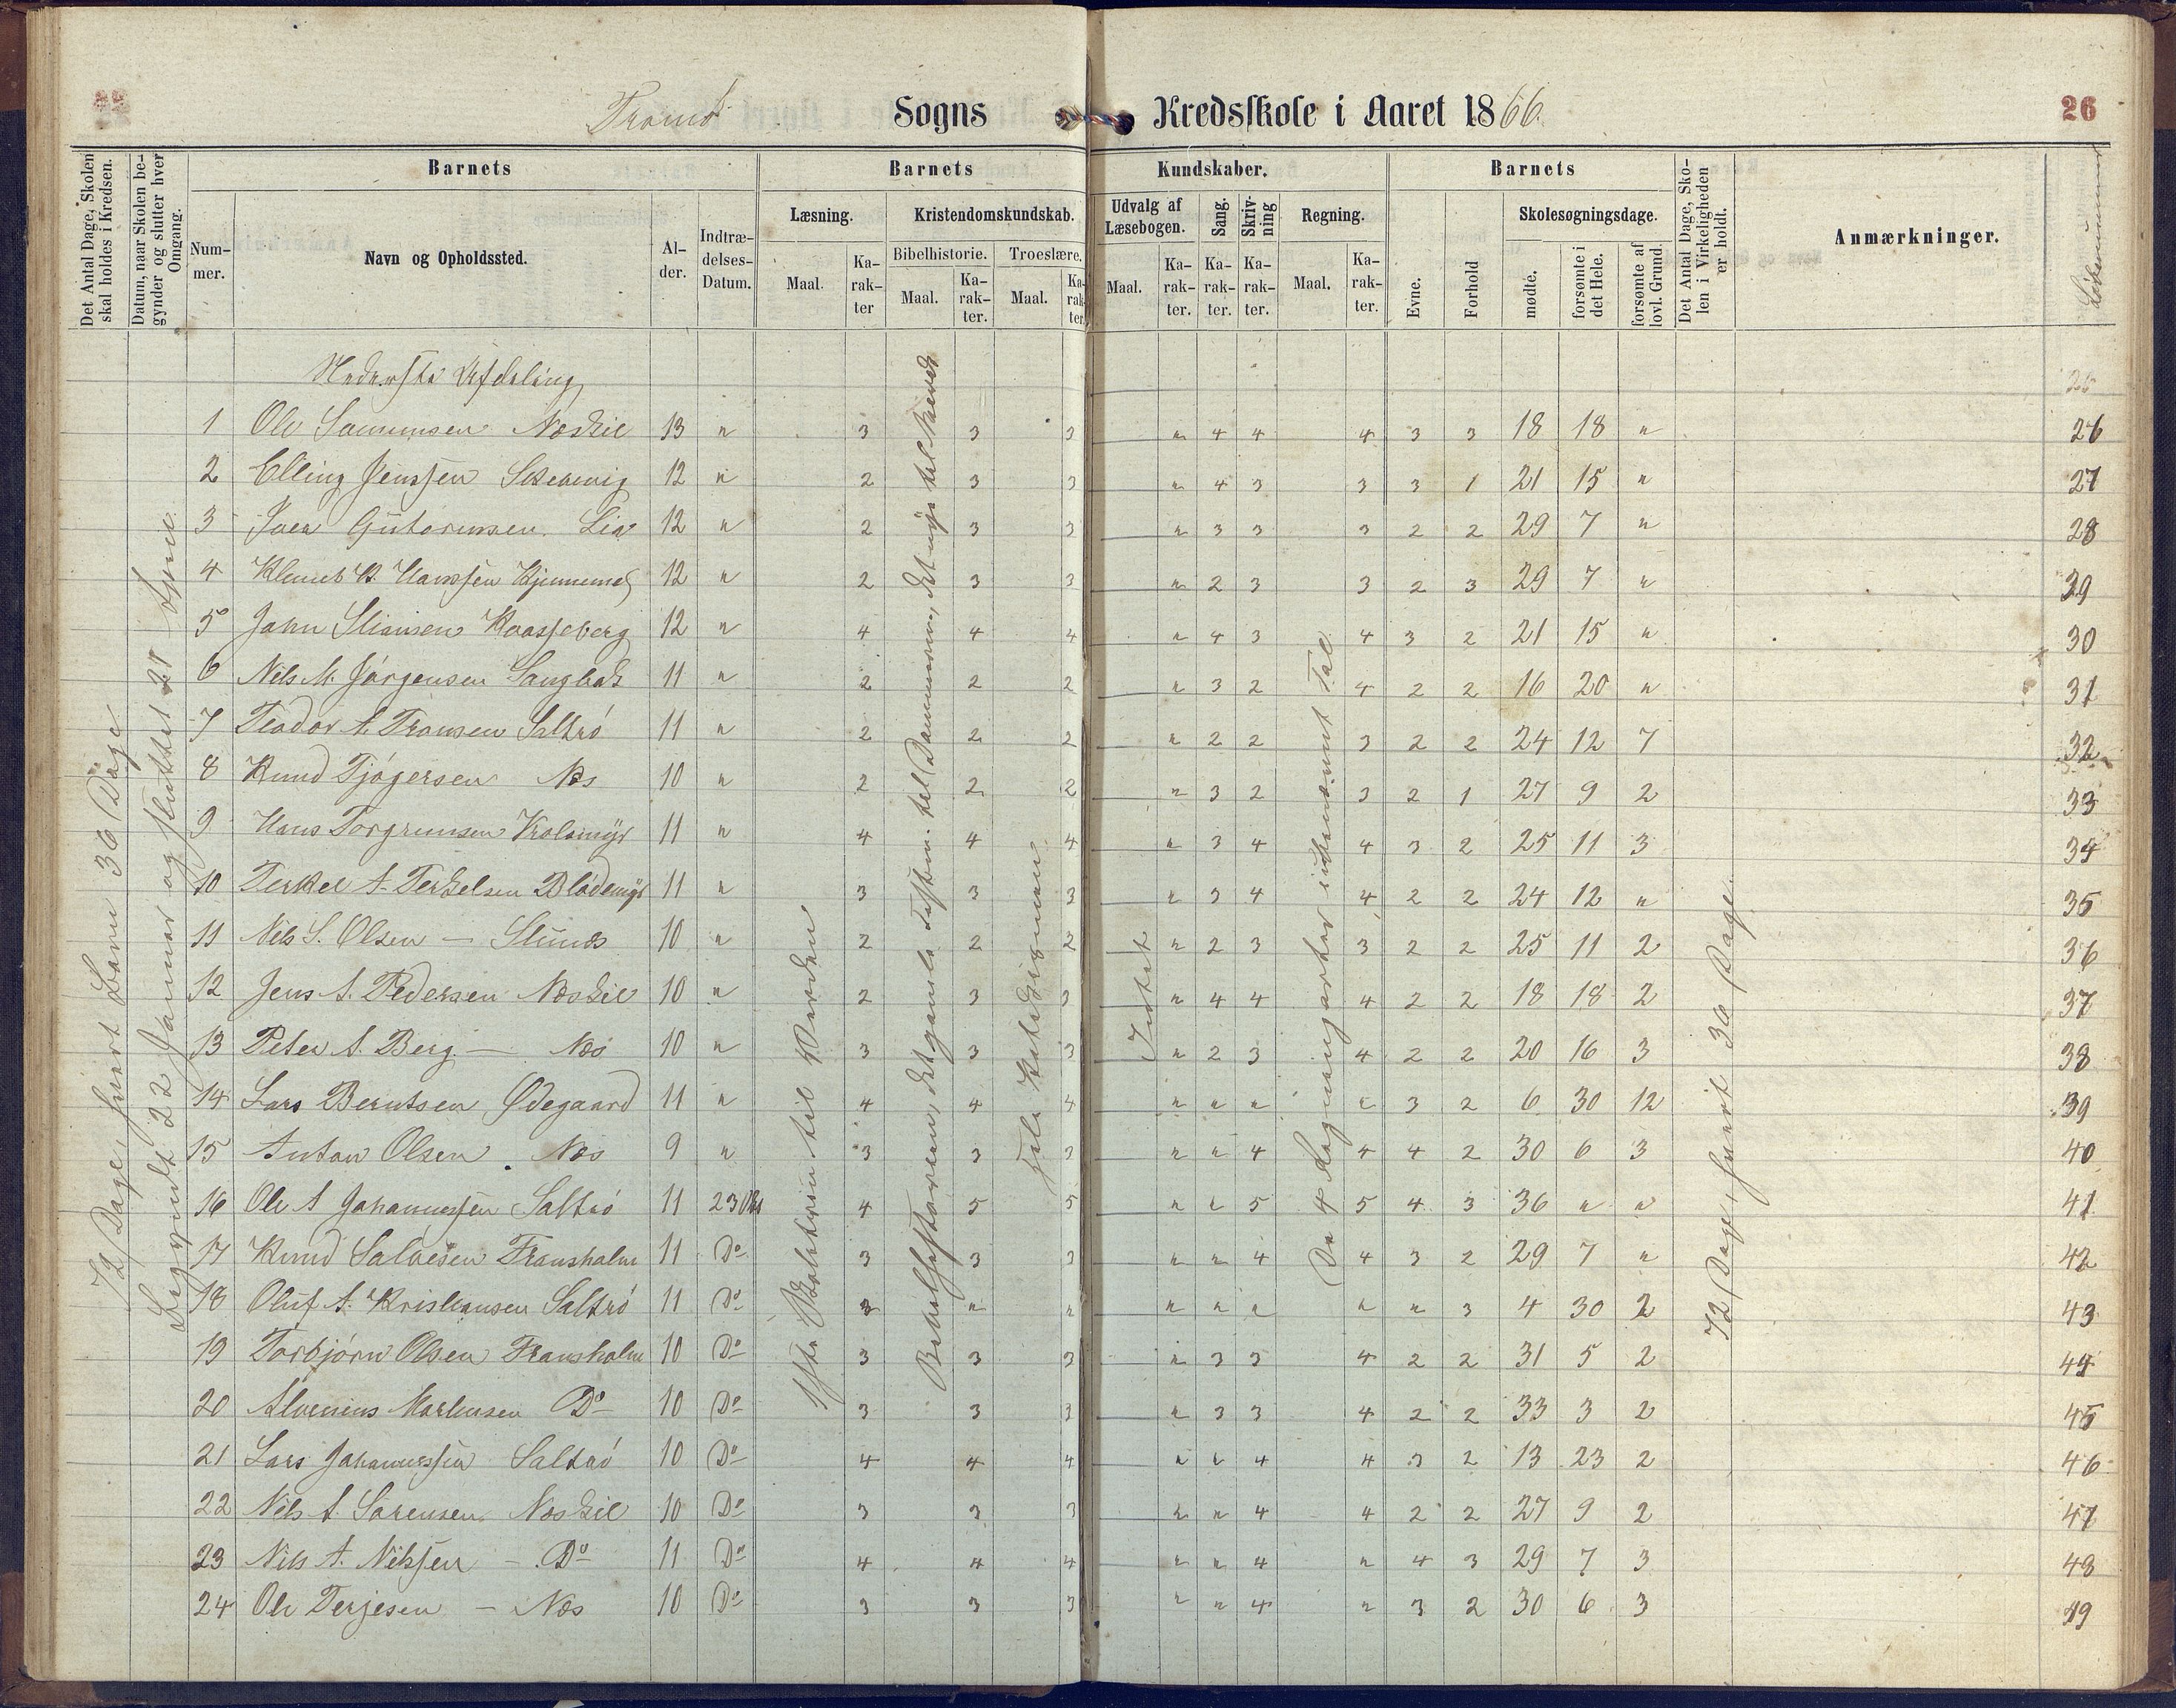 Tromø Sogns Kredsskole i Aaret 1866. 26
Det Antal Dage, Skolen skal holdes i Kredsen.
Datum, naar Skolen begynder og slutter hver Omgang.
Barnets
Nummer.
Navn og Opholdssted.
Alder.
Indtrædelses-Datum.
Barnets Kundskaber.
Læsning. Maal. Karakter
Kristendomskundskab.
Bibelhistorie. Maal. Karakter.
Troeslære. Maal. Karakter.
Udvalg af Læsebogen. Maal. Karakter.
Sang. Karakter.
Skrivning Karakter.
Regning. Maal. Karakter.
Barnets
Evne. Forhold
Skolesøgningsdage.
mødte. forsømte i det Hele. forsømte af lovl. Grund.
Det Antal Dage, Skolen i Virkeligheden er holdt.
Anmærkninger.
Løbenummer
72 Dage, hvert Barn 36 Dage
Begyndt 22 Januar og sluttet 21
til Verden
Hele
Intet
De 4 Regningarter
72 Dage, hvert 36 Dage.
Nederste Afdeling
1 Ole Samuelsen Næskil 13 " 3 3 3 " 4 4 4 3 3 18 18 " 26
2 Elling Jenssen Skarvvig 12 " 2 3 3 " 4 3 3 3 1 21 15 " 27
3 Iver Gutormsen. Lia 12 " 2 3 3 " 3 3 3 2 2 29 7 " 28
4 Hanssen 12 " 2 3 3 " 2 3 3 2 3 29 7 " 29
5 John Stiansen 12 " 4 4 4 " 4 3 4 3 2 21 15 " 30
6 Nils M. Jörgensen 11 " 2 2 2 " 3 2 4 2 2 16 20 " 31
7 Teodor A. Tronsen Saltrö 11 " 2 2 2 " 2 2 3 2 2 24 12 7 32
8 Knud Tjögersen Næs 10 " 2 2 2 " 3 2 3 2 1 27 9 2 33
9 Hans Torgrimsen Kolomyr 11 " 4 4 4 " 3 4 4 3 2 25 11 3 34
10 Terkel A. Terkelsen Blödemyr 11 " 3 3 3 " 3 4 4 2 2 24 12 " 35
11 Nils S. Olsen — 10 " 2 2 2 " 2 3 3 2 2 25 11 2 36
12 Jens A. Pedersen Næskil 10 " 2 3 3 " 4 4 4 2 2 18 18 2 37
13 Peter A. Berg — Næs 10 " 3 3 3 " 2 3 4 2 2 20 16 3 38
14 Lars Berntsen Ødegaard 11 " 4 4 4 " " " " 3 2 6 30 12 39
15 Anton Olsen Næs 9 " 3 3 3 " " 4 4 4 2 30 6 3 40
16 Ole A Johannessen Saltrö 11 23 Okt 4 5 5 " " 5 5 4 3 36 " " 41
17 Knud Salvesen Fransholm 11 Do 3 3 3 " " 4 4 3 2 29 7 " 42
18 Oluf A. Kristiansen Saltrö 11 Do 3 " " " " " " " 3 4 30 2 43
19 Torbjörn Olsen Fransholm 10 Do 3 3 3 " 3 3 4 2 2 31 5 2 44
20 Do 10 Do 3 3 3 " 3 3 4 2 2 33 3 2 45
21 Lars Johannessen Saltrö 10 Do 4 4 4 " " 4 4 3 2 13 23 2 46
22 Nils A. Sörensen Næskil 10 Do 3 3 3 " " 4 4 2 2 27 9 2 47
23 Nils A. Nilssen — Do 11 Do 4 4 4 " " 4 " 4 3 29 7 3 48
24 Ole Terjesen — Næs 10 Do 3 3 3 " " 4 " 3 2 30 6 3 49